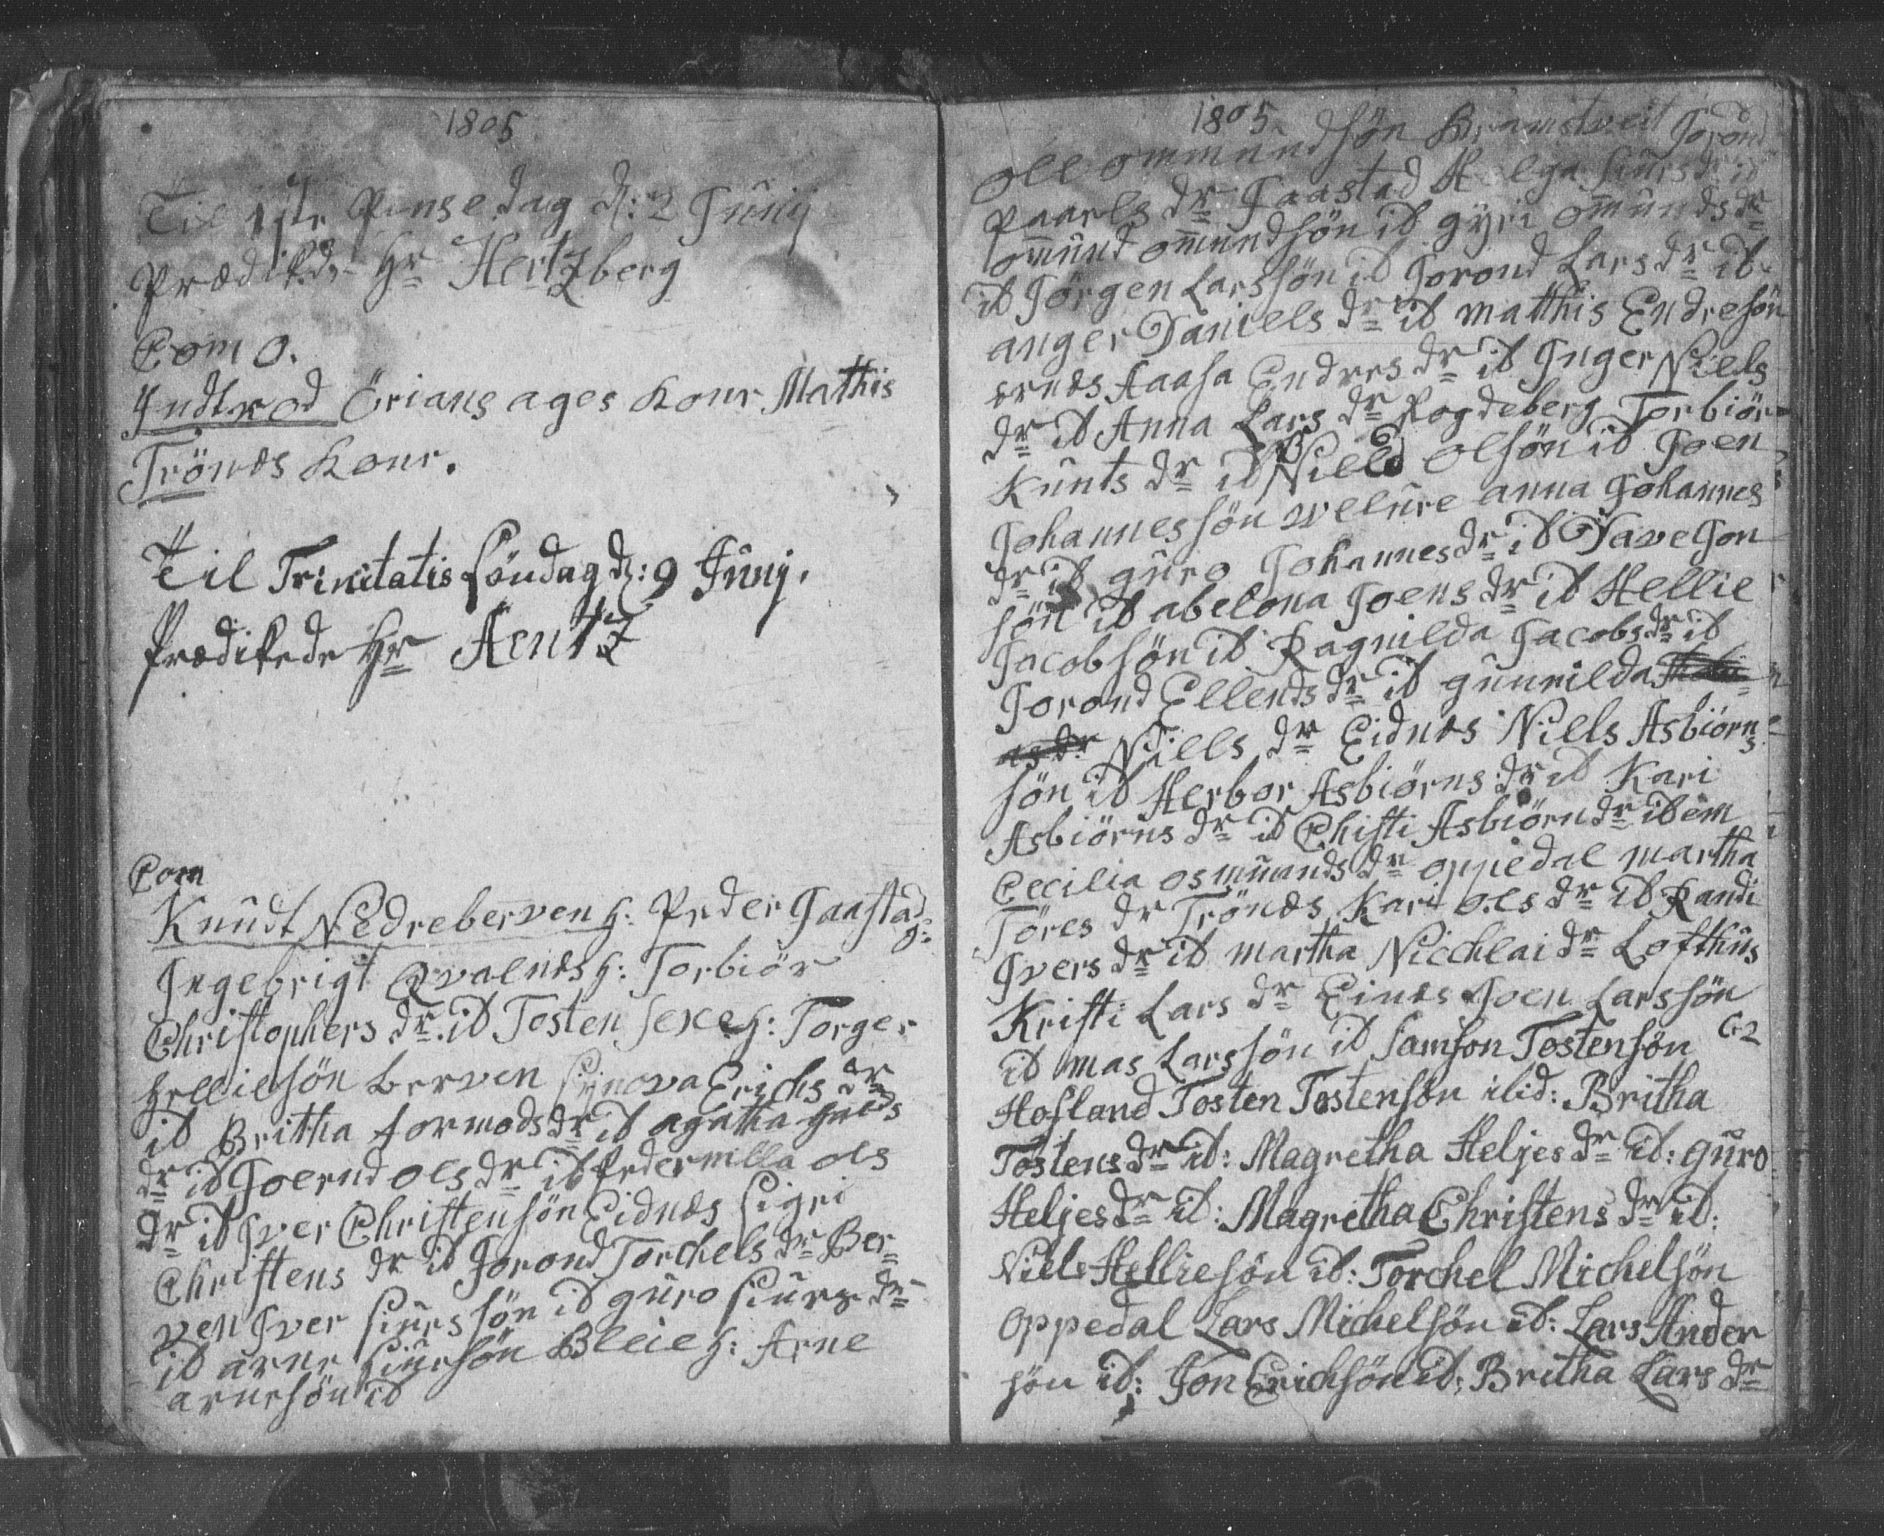 1805
Til 1ste Pinsedag d: 2 Junij
Prædikede Hr Hertzberg
Com 0.
Indtrod Örians ages Kone Mathis
Trönes Kone.
Til Trinitatis Söndag d: 9 Junij.
Prædikede Hr Aentz
Com
Knudt Nedreberven h: Peder Jaastad
g:
Ingebrigt Qvalnes h: Torbiör
Christophers dr. id Tosten Sexe h: Torger
Helliesön Berven Synova Erichs dr
id Britha Tormods dr id agatha
dr id Joernd Ols dr id Pedernilla Ols
dr id Iver Christensön Eidnes Sigri
Christens dr id Jorond Torchels dr Ber-
ven Iver Siurssön id guro Siurs dr
id arne Siursön Bleie h: Arne
arnesön id
1805
Ole Ommundsön Kramstveit Jorond
Paaels dr Jaastad Helga Siurs dr id
Omund Omundsön id gyri Omunds dr
id Jörgen Larssön id Jorond Lars dr id
anger Daniels dr id Matthis Endresön
Aasa Endres dr id Inger Niels
dr id Anna Lars dr Rogdeberg Torbiör
Kunts dr id Niels Olsön id Joen
Johannessön Velure anna Johannes
dr id guro Johannes dr id Dave Jon
sön id abelona Joens dr id Hellie
Jacobsön id Ragnilda Jacobs dr id
Jorond Ellends dr id gunnilda
as dr Niells dr Eidnes Niells Asbiörns
sön id Herbor Asbiörns dr id Kari
Asbiörns dr id Christi Asbiörn dr ibem
Cecilia Osmunds dr oppedal Martha
Töres dr Trönes Kari Ols dr id Randi
Ivers dr id Martha Nicchlai dr Lofthus
Kristi Lars dr Eines Joen Larssön
id Mas Larssön id Samson Tostensön 62
Hofland Tosten Tostensön ibid: Britha
Tostens dr id: Magretha Heljes dr id: guro
Heljes dr id: Magretha Christens dr id:
Niels Helliesön id: Torchel Michelsön
Oppedal Lars Michelsön id: Lars Ander
sön id: Jon Erichsön id: Britha Lars dr